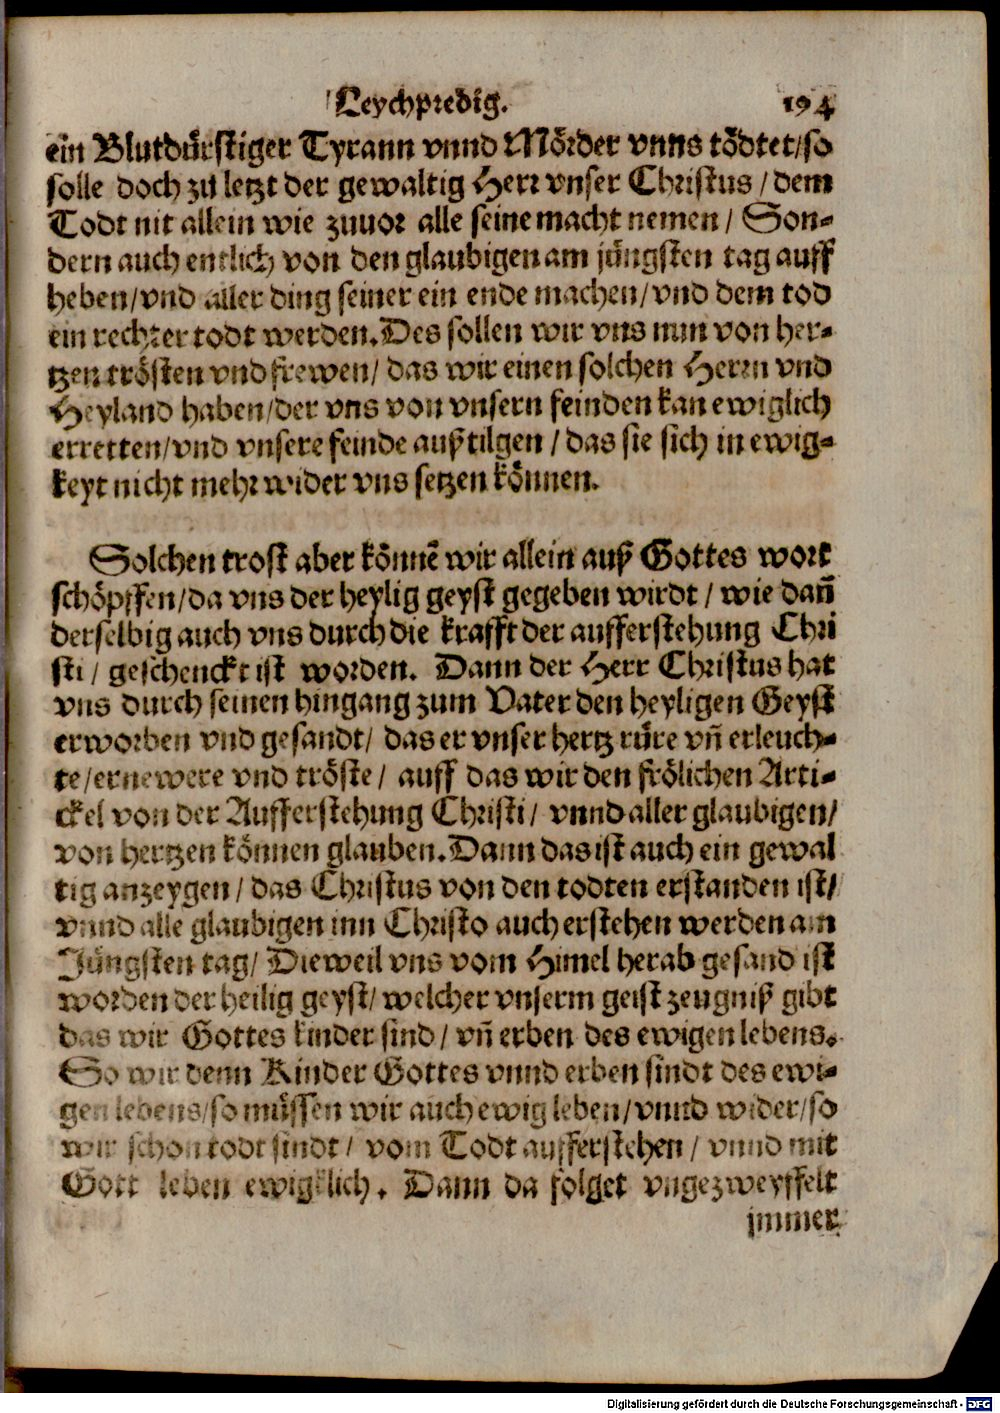 Leychpredig. 194
ein Blutdürstiger Tyrann vnnd Mörder vnns tödtet/so
solle doch zu letzt der gewaltig Herr vnser Christus / dem
Todt nit allein wie zuuor alle seine macht nemen / Son-
dern auch entlich von den glaubigen am jüngsten tag auff
heben/vnd aller ding seiner ein ende machen/vnd dem tod
ein rechter todt werden. Des sollen wir vns nun von her-
tzen trösten vnd frewen/ das wir einen solchen Herrn vnd
Heyland haben/der vns von vnsern feinden kan ewiglich
erretten/vnd vnsere feinde außtilgen / das sie sich in ewig-
keyt nicht mehr wider vns setzen können.
Solchen trost aber könnē wir allein auß Gottes wort
schöpffen/da vns der heylig geyst gegeben wirdt / wie dañ
derselbig auch vns durch die krafft der aufferstehung Chri
sti / geschenckt ist worden. Dann der Herr Christus hat
vns durch seinen hingang zum Vater den heyligen Geyst
erworben vnd gesandt/ das er vnser hertz rüre vñ erleuch-
te/ernewere vnd tröste/ auff das wir den frölichen Arti-
ckel von der Aufferstehung Christi/ vnnd aller glaubigen/
von hertzen können glauben. Dann das ist auch ein gewal
tig anzeygen / das Christus von den todten erstanden ist/
vnnd alle glaubigen inn Christo auch erstehen werden am
Jüngsten tag/ Dieweil vns vom Himel herab gesand ist
worden der heilig geyst/ welcher vnserm geist zeugniß gibt
das wir Gottes kinder sind / vñ erben des ewigen lebens.
So wir denn Kinder Gottes vnnd erben sindt des ewi-
gen lebens/so müssen wir auch ewig leben/vnnd wider/so
wir schon todt sindt / vom Todt aufferstehen / vnnd mit
Gott leben ewigklich. Dann da folget vngezweyffelt
jmmer
Digitalisierung gefördert durch die Deutsche Forschungsgemeinschaft - DFG